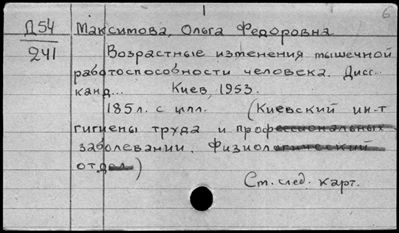 6
Д54 Максимова, Ольга Федоровна
241
Возрастные изменения мышечной
работоспособности человека. Дисс...
канд... Киев, 1953.
185л. с илл. (Киевский ин-т
гигиены труда и профессиональных
заболевании. Физиологический
отдел)
См. след. карт.